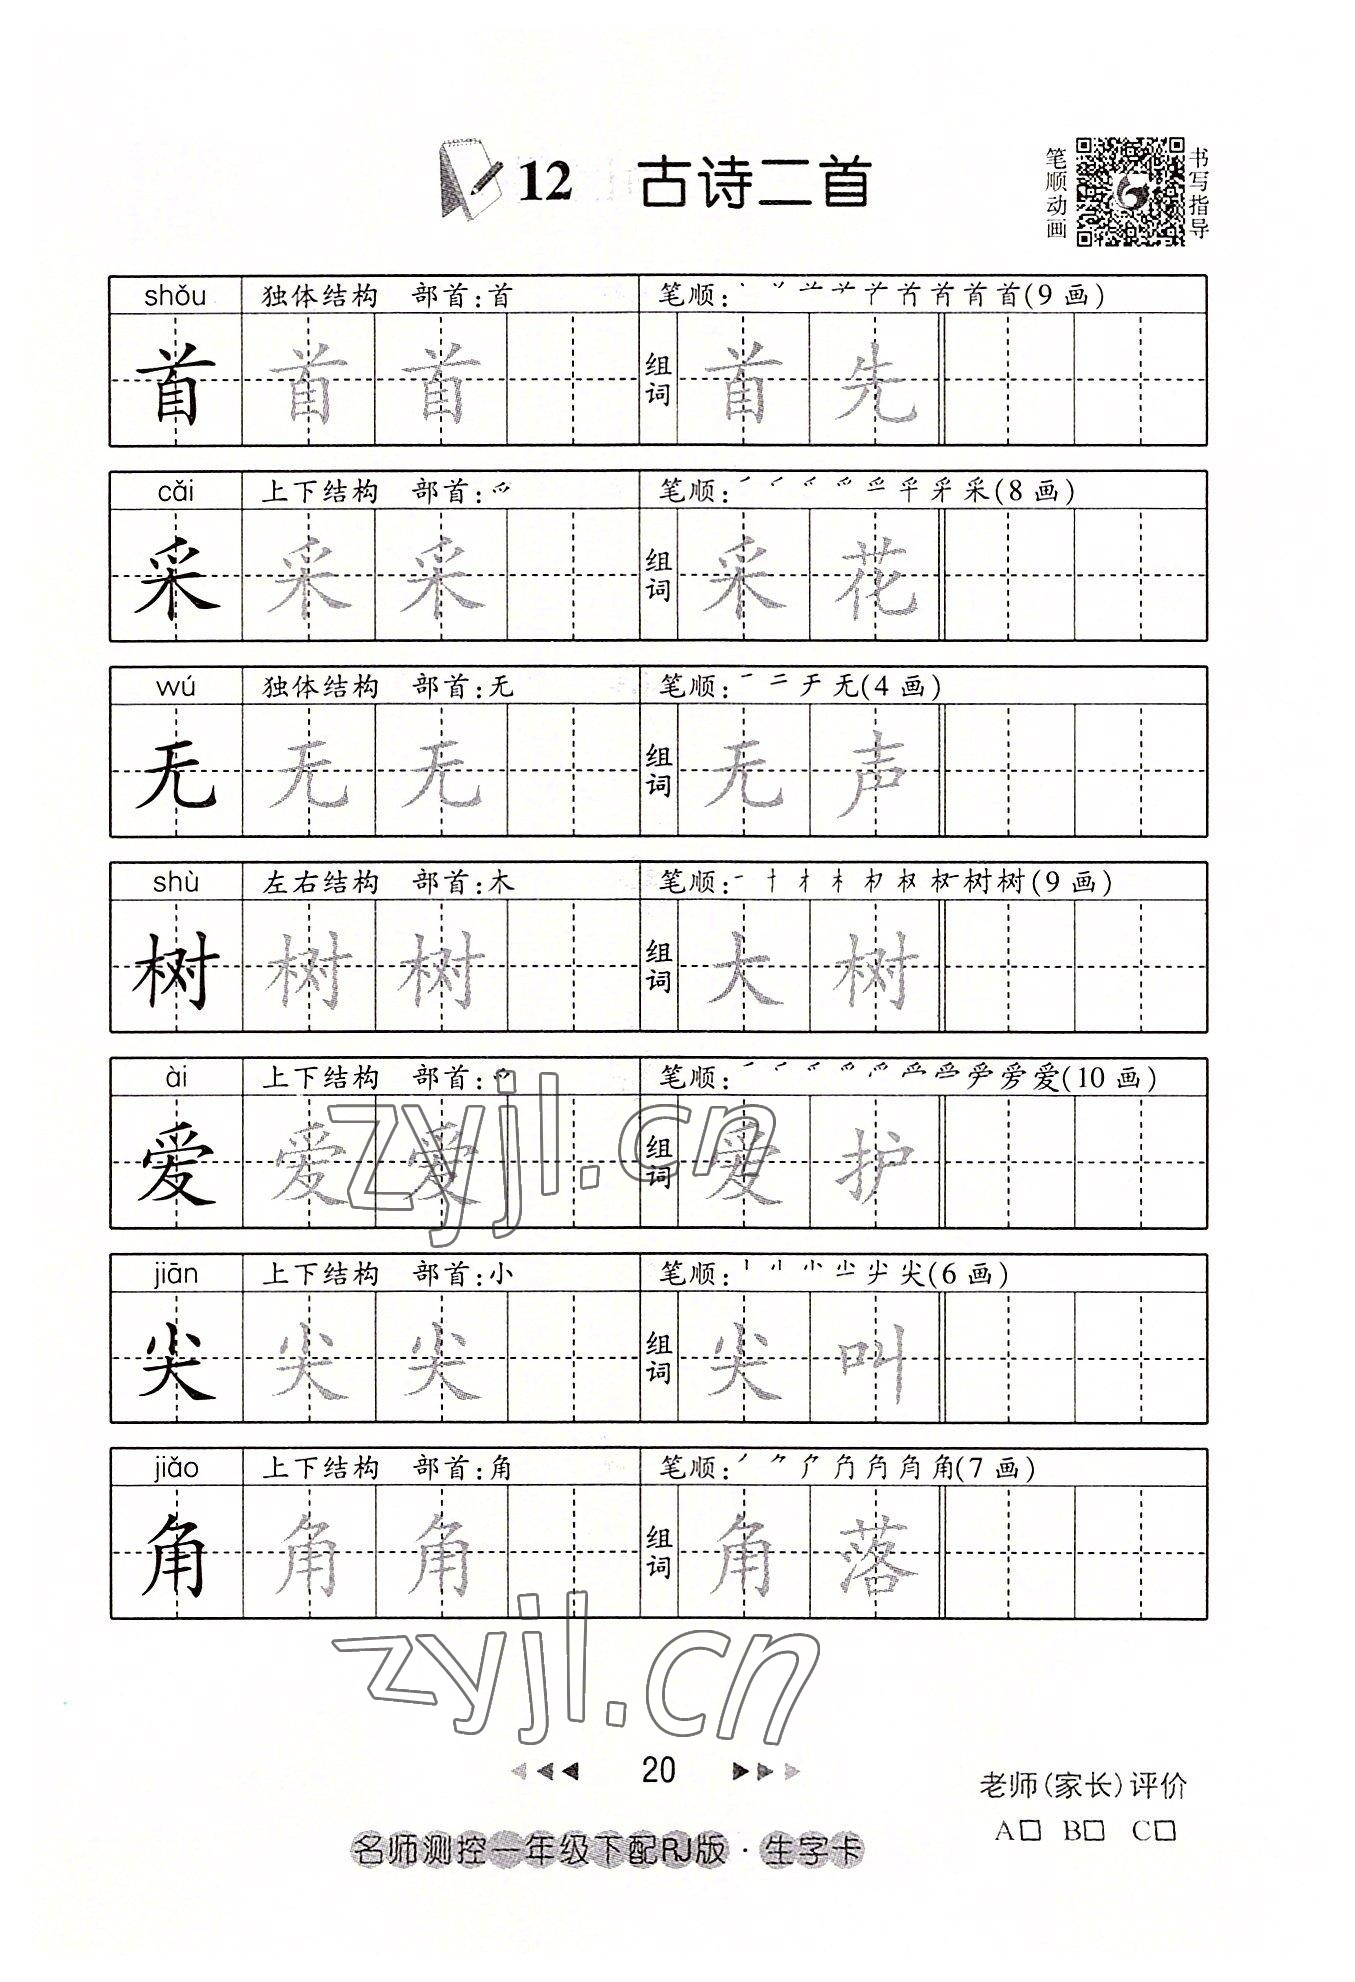 12 古诗二首
笔顺动画
书写指导
shǒu 独体结构 部首:首 笔顺: 首(9画)
首 首 首 组词 首 先
cǎi 上下结构 部首:爫 笔顺: 采(8画)
采 采 采 组词 采 花
wú 独体结构 部首:无 笔顺: 一 二 于 无(4画)
无 无 无 组词 无 声
shù 左右结构 部首:木 笔顺: 一 十 才 木 权 树 树(9画)
树 树 树 组词 大 树
ài 上下结构 部首:爫 笔顺: 爱(10画)
爱 爱 爱 组词 爱 护
zyjl.cn
jiān 上下结构 部首:小 笔顺: 小 尖(6画)
尖 尖 尖 组词 尖 叫
jiǎo 上下结构 部首:角 笔顺: 角(7画)
角 角 角 组词 角 落
zyjl.cn
20
老师(家长)评价
A□ B□ C□
名师测控一年级下配RJ版·生字卡